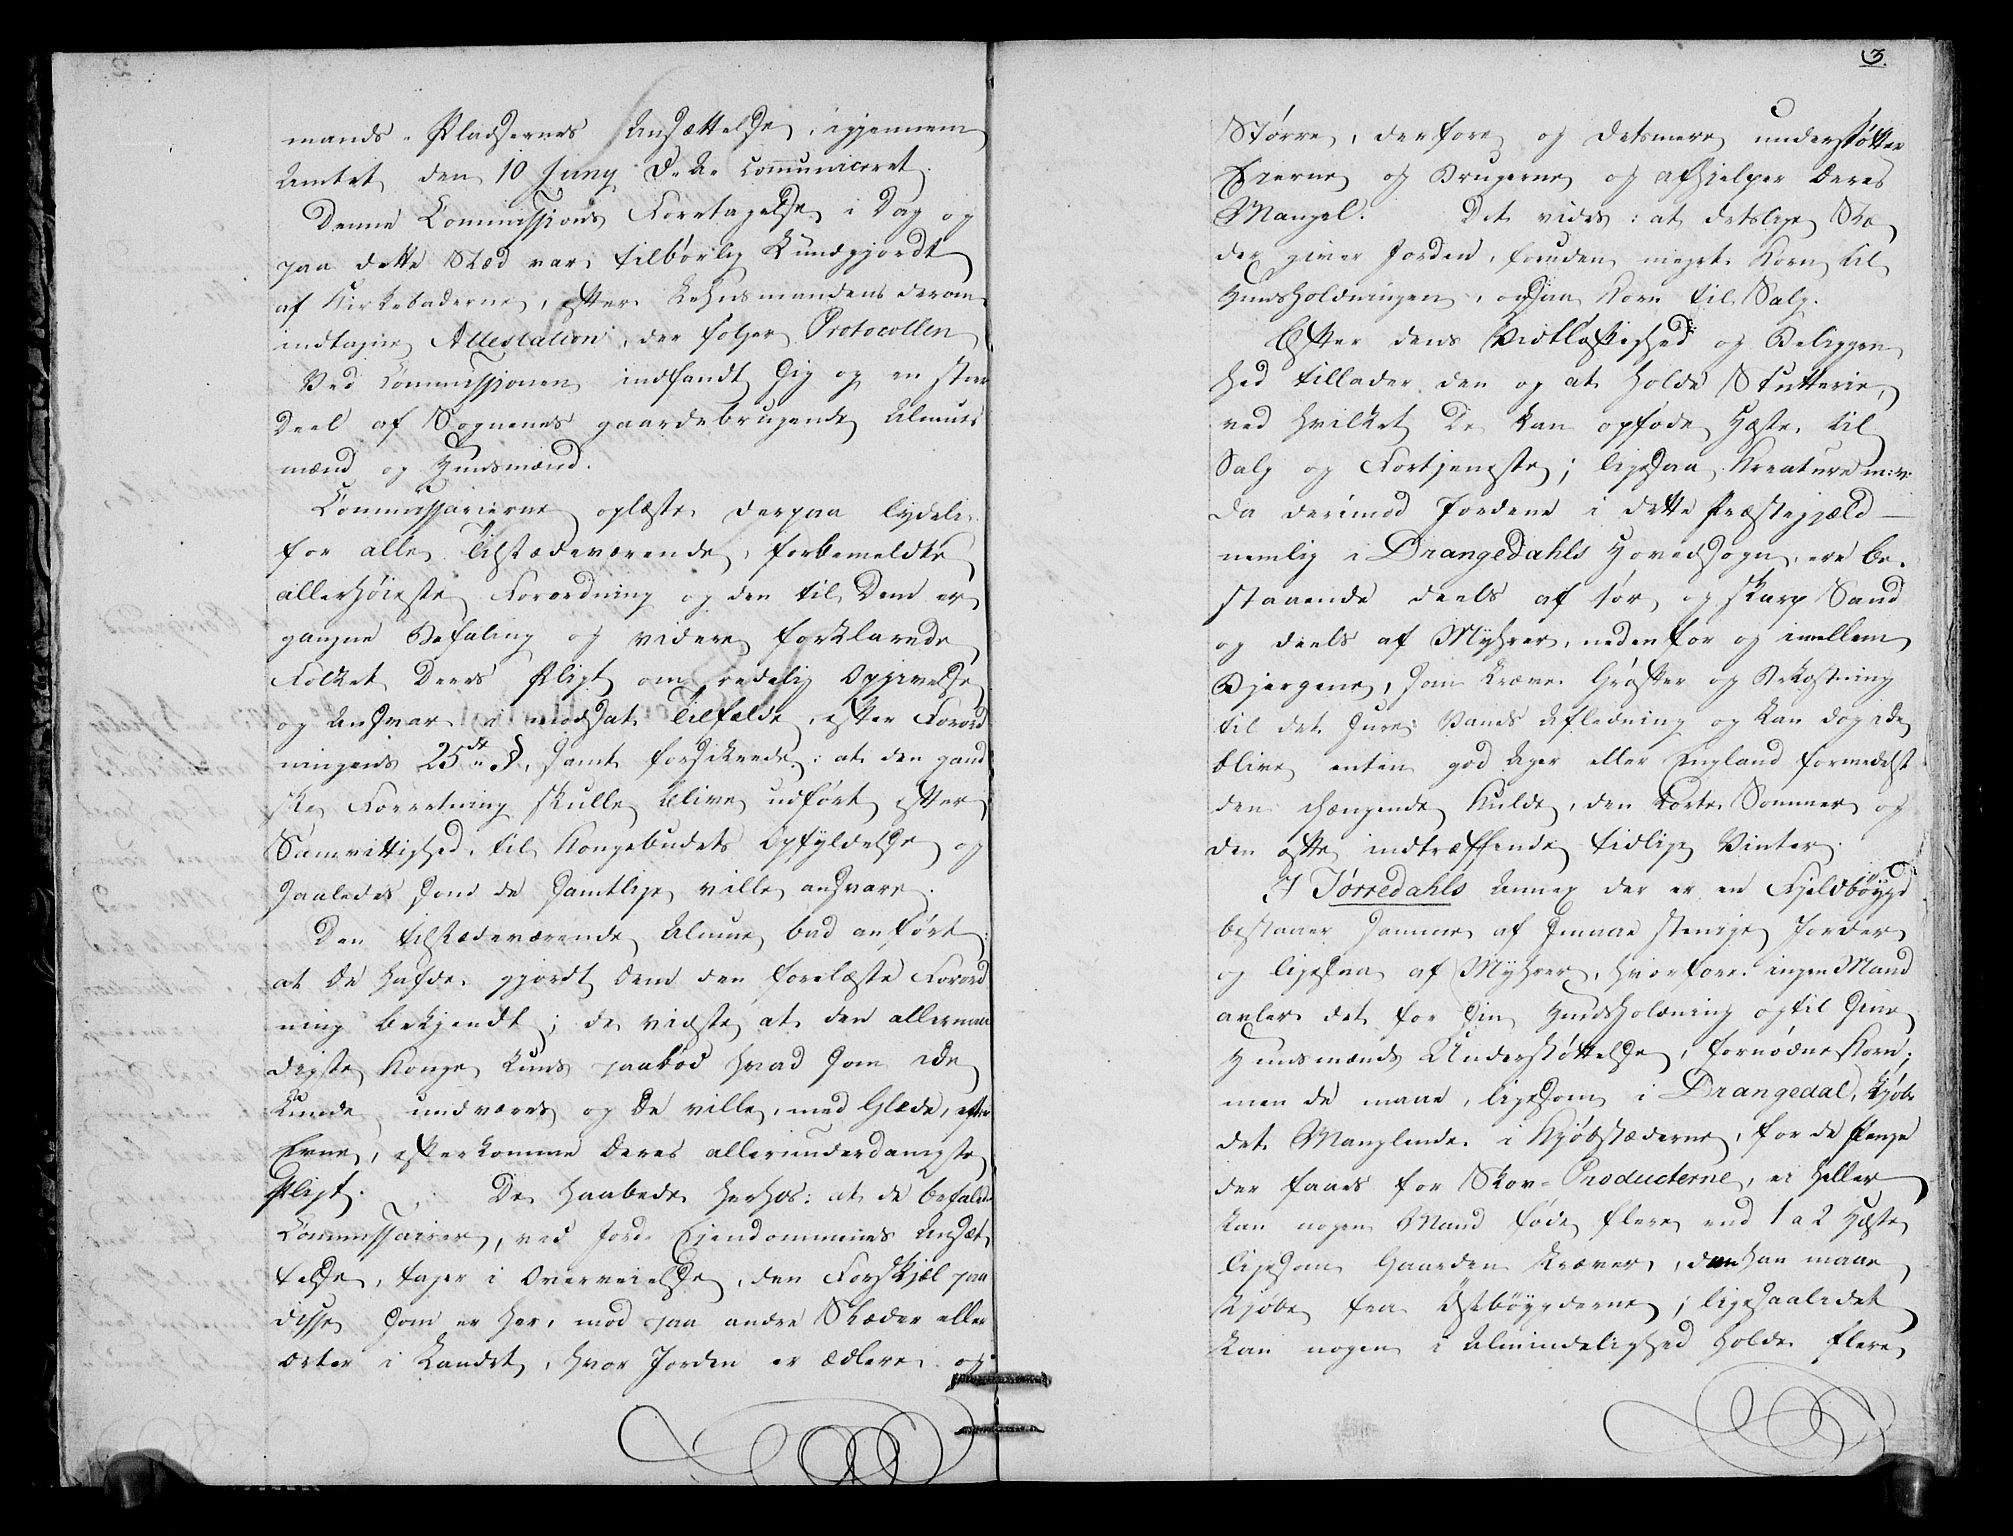 mands-Pladsernes Ansættelse, igjennem
Amtet den 10 Juny d. A. communiceret.
Denne Commissions Foretagelse i Dag og
paa dette Stæd var tilbørlig Kundgjordt
af Kirkebaderne, efter Lehnsmandens derom
indtagne Attestation, der følger Protocollen
Ved Commissionen indfandt sig og en stor
Deel af Sognenes gaardebrugende Almues
mænd og Huusmænd.
Commissarierne oplæste derpaa lydeli.
for alle Tilstædeværende, forbemeldte
allerhøieste Forordning og den til Dem er
gangne Befaling og videre forklarede
Folket deres Pligt om redelig Opgivelse
og Ansvar i modsat Tilfælde, efter Forord
ningens 25de §, samt forsikrede: at den gand
ske Forretning skulle blive udført efter
Samvittighed, til Kongebudets Opfyldelse og
saaledes som de samtlige ville ansvare.
Den tilstædeværende Almue bad anført:
at de hafde gjordt dem den forelæste Forord
ning bekjendt; de vidste at den allernaa
digste Konge kuns paabød hvad som ide
kunde undværes og de ville, med Glæde, efter
Evne, efterkomme deres allerunderdanigste
Pligt. De haabede herhos: at de befalede
Commissairer, ved Jord-Eiendommenes Ansæt
telse, tager i Overveielse, den Forskjæl paa
disse som er her, mod paa andre Stæder eller
Orter i Landet, hvor Jorden er ædlere og
3.
Større, derfore og detsmere understøtter
Eierne og Brugerne og afhjelper deres
Mangel. Det vides: at detslige Stæ
der giver Jorden, foruden meget Korn til
Huusholdningen, ogsaa Korn til Salg.
Efter dens Vidtløftighed og Beliggen
hed tillader den og at holde Stutterie,
ved hvilket De kan opføde Hæste til
Salg og Fortjeneste; ligesaa Kreature m: v:
da derimod Jordene i dette Præstegjæld
nemlig i Drangedahls Hovedsogn, ere be-
staaende deels af tør og skarp Sand
og deels af Myhrer, nedenfor og imellem
Bjergene, som kræver Grøfter og Bekostning
til det sure Vands Afledning og kan dog ide
blive enten god Ager eller England formedelst
den hængende Kulde, den korte Sommer og
den ofte indtræffende tidlige Vinter.
I Tørredahls Annex der er en Fjeldbøygd
bestaaer samme af smaae stenige Jorder
og ligesaa af Myhrer, hvorfore ingen Mand
avler det for sin Huusholdning og til sine
Huusmænds Understøttelse, fornødne Korn;
men de maae, ligesom i Drangedal, kjøbe
det Manglende i Kjøbstæderne, for de Penge
der faaes for Skov-Producterne, ei heller
kan nogen Mand føde flere end 1 a 2 Hæste
ligesom Gaarden kræver, dem han maae
kjøbe fra Østbøygderne; ligesaaledet
kan nogen i Almindelighed holde flere